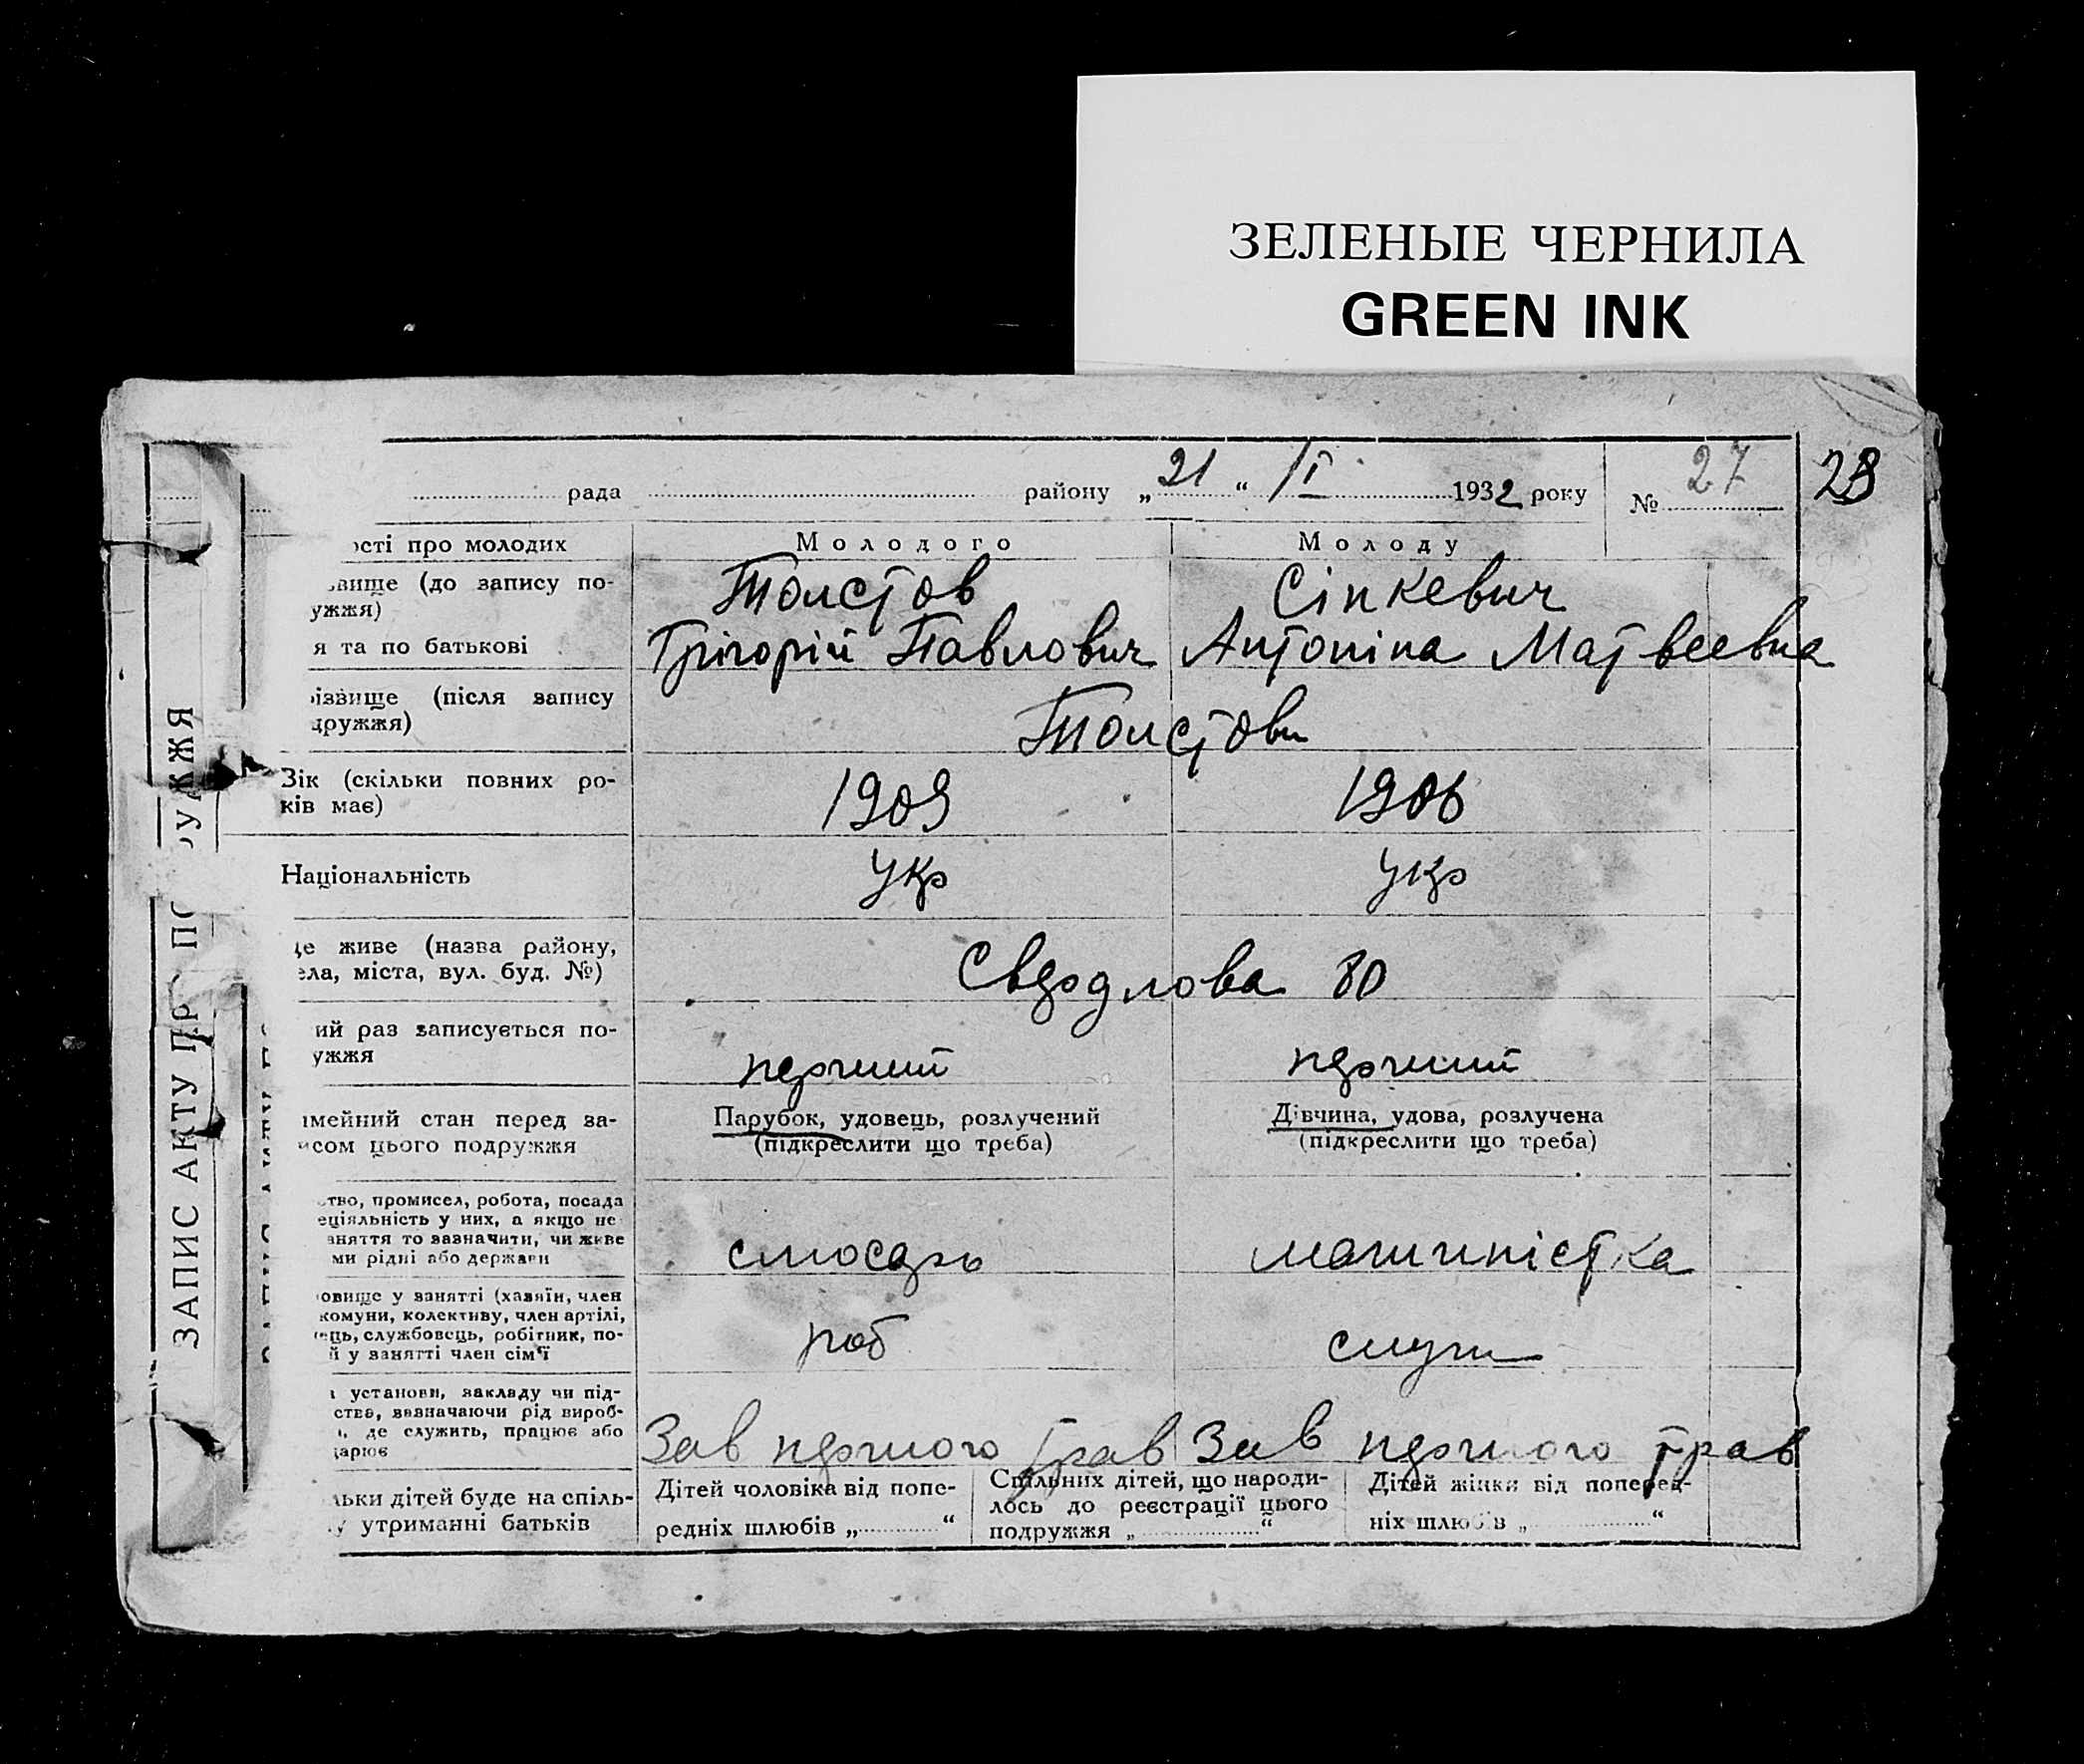 ЗЕЛЕНЫЕ ЧЕРНИЛА
GREEN INK
рада району „21“ /I 1932 року № 27 23
ості про молодих Молодого Молоду
звище (до запису по-
ужжя) Толстов Сінкевич
я та по батькові Грігорій Павлович Антоніна Матвеевна
ізвище (після запису
дружжя) Толстови
Зік (скільки повних ро-
ків має) 1909 1906
Національність Укр Укр
де живе (назва району,
ела, міста, вул. буд. №) Свердлова 80
ий раз записується по-
ужжя перший перший
імейний стан перед за- Парубок, удовець, розлучений Дівчина, удова, розлучена
исом цього подружжя (підкреслити що треба) (підкреслити що треба)
ство, промисел, робота, посада
еціяльність у них, а якщо не
аняття то зазначити, чи живе
ми рідні або держави слюсарь машиністка
овище у занятті (хазяїн, член
комуни, колективу, член артілі,
ець, службовець, робітник, по-
й у занятті член сім'ї роб служ
установи, закладу чи під-
ства, зазначаючи рід вироб-
де служить, працює або
дарює Зав першого Трав Зав першого Трав
льки дітей буде на спіль-
у утриманні батьків
Дітей чоловіка від попе-
редніх шлюбів „ “
Спільних дітей, що народи-
лось до реєстрації цього
подружжя „ “
Дітей жінки від поперед-
ніх шлюбів „ “
ЗАПИС АКТУ ПР ПО УЖЖЯ